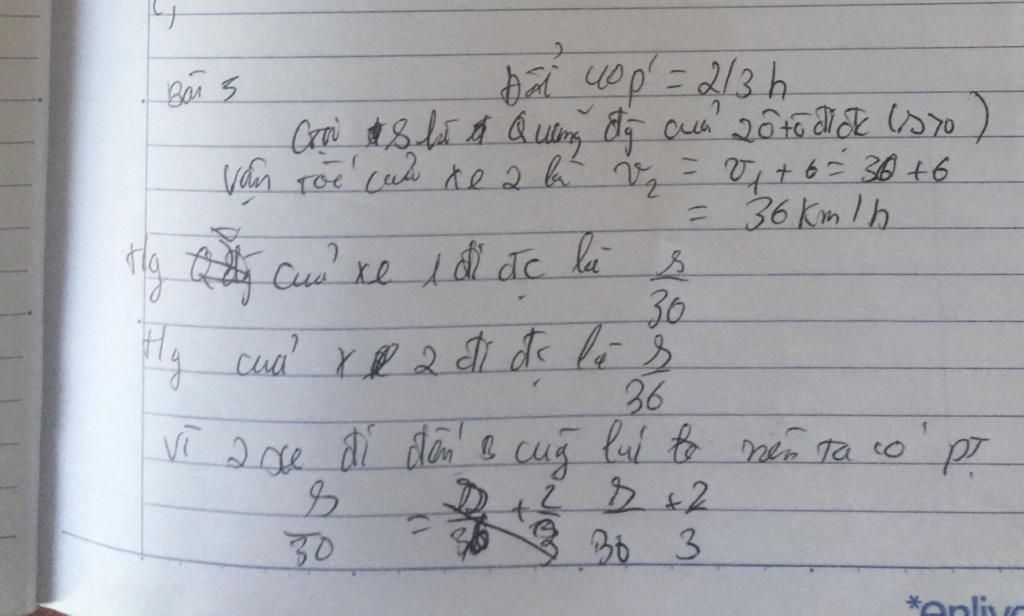 c,
Bài 5 Đổi 40p' = 2/3 h
Gọi s là Quãng đg của 2 ô tô đi đc (s>0)
Vận tốc của xe 2 là v₂ = v₁ + 6 = 30 + 6
= 36 km/h
Hg của xe 1 đi đc là s/30
Hg của x 2 đi đc là s/36
Vì 2 xe đi đến B cùg lúi to nên ta có pt
s/30 = s/36 + 2/3
*enliv